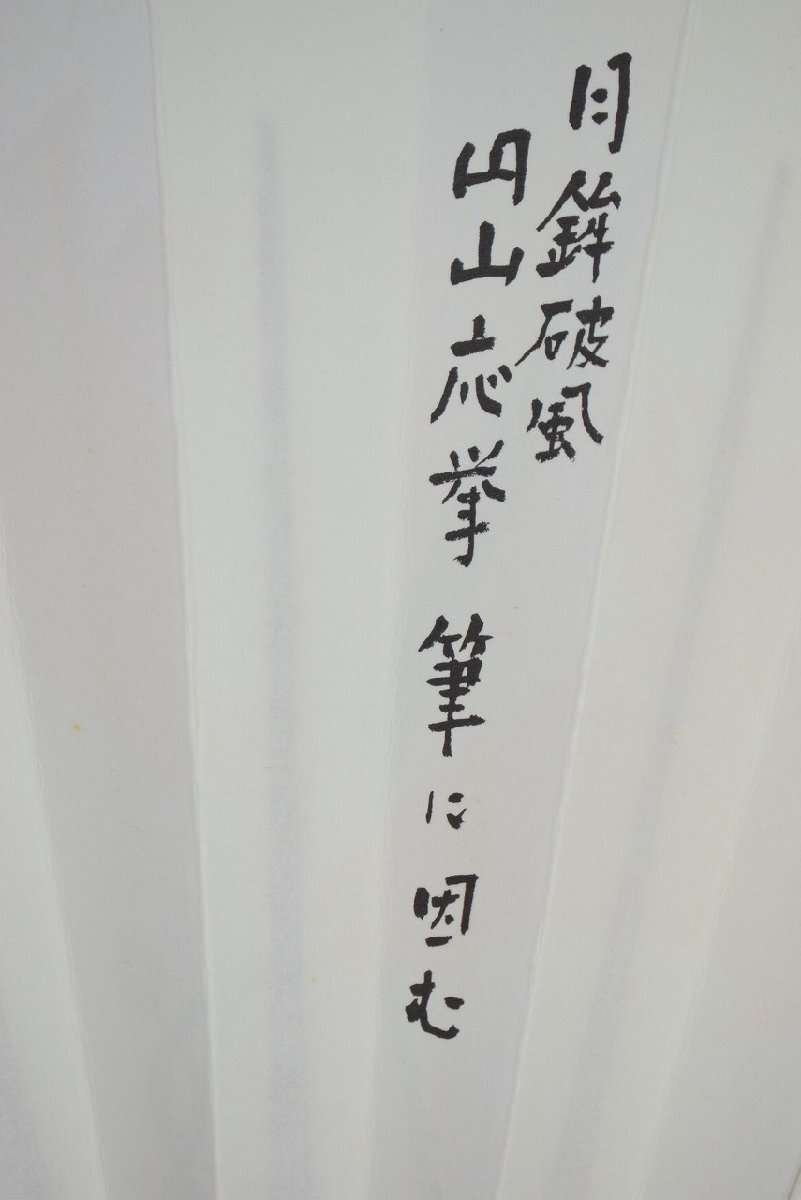 月鉾破風
円山応挙 筆に因む